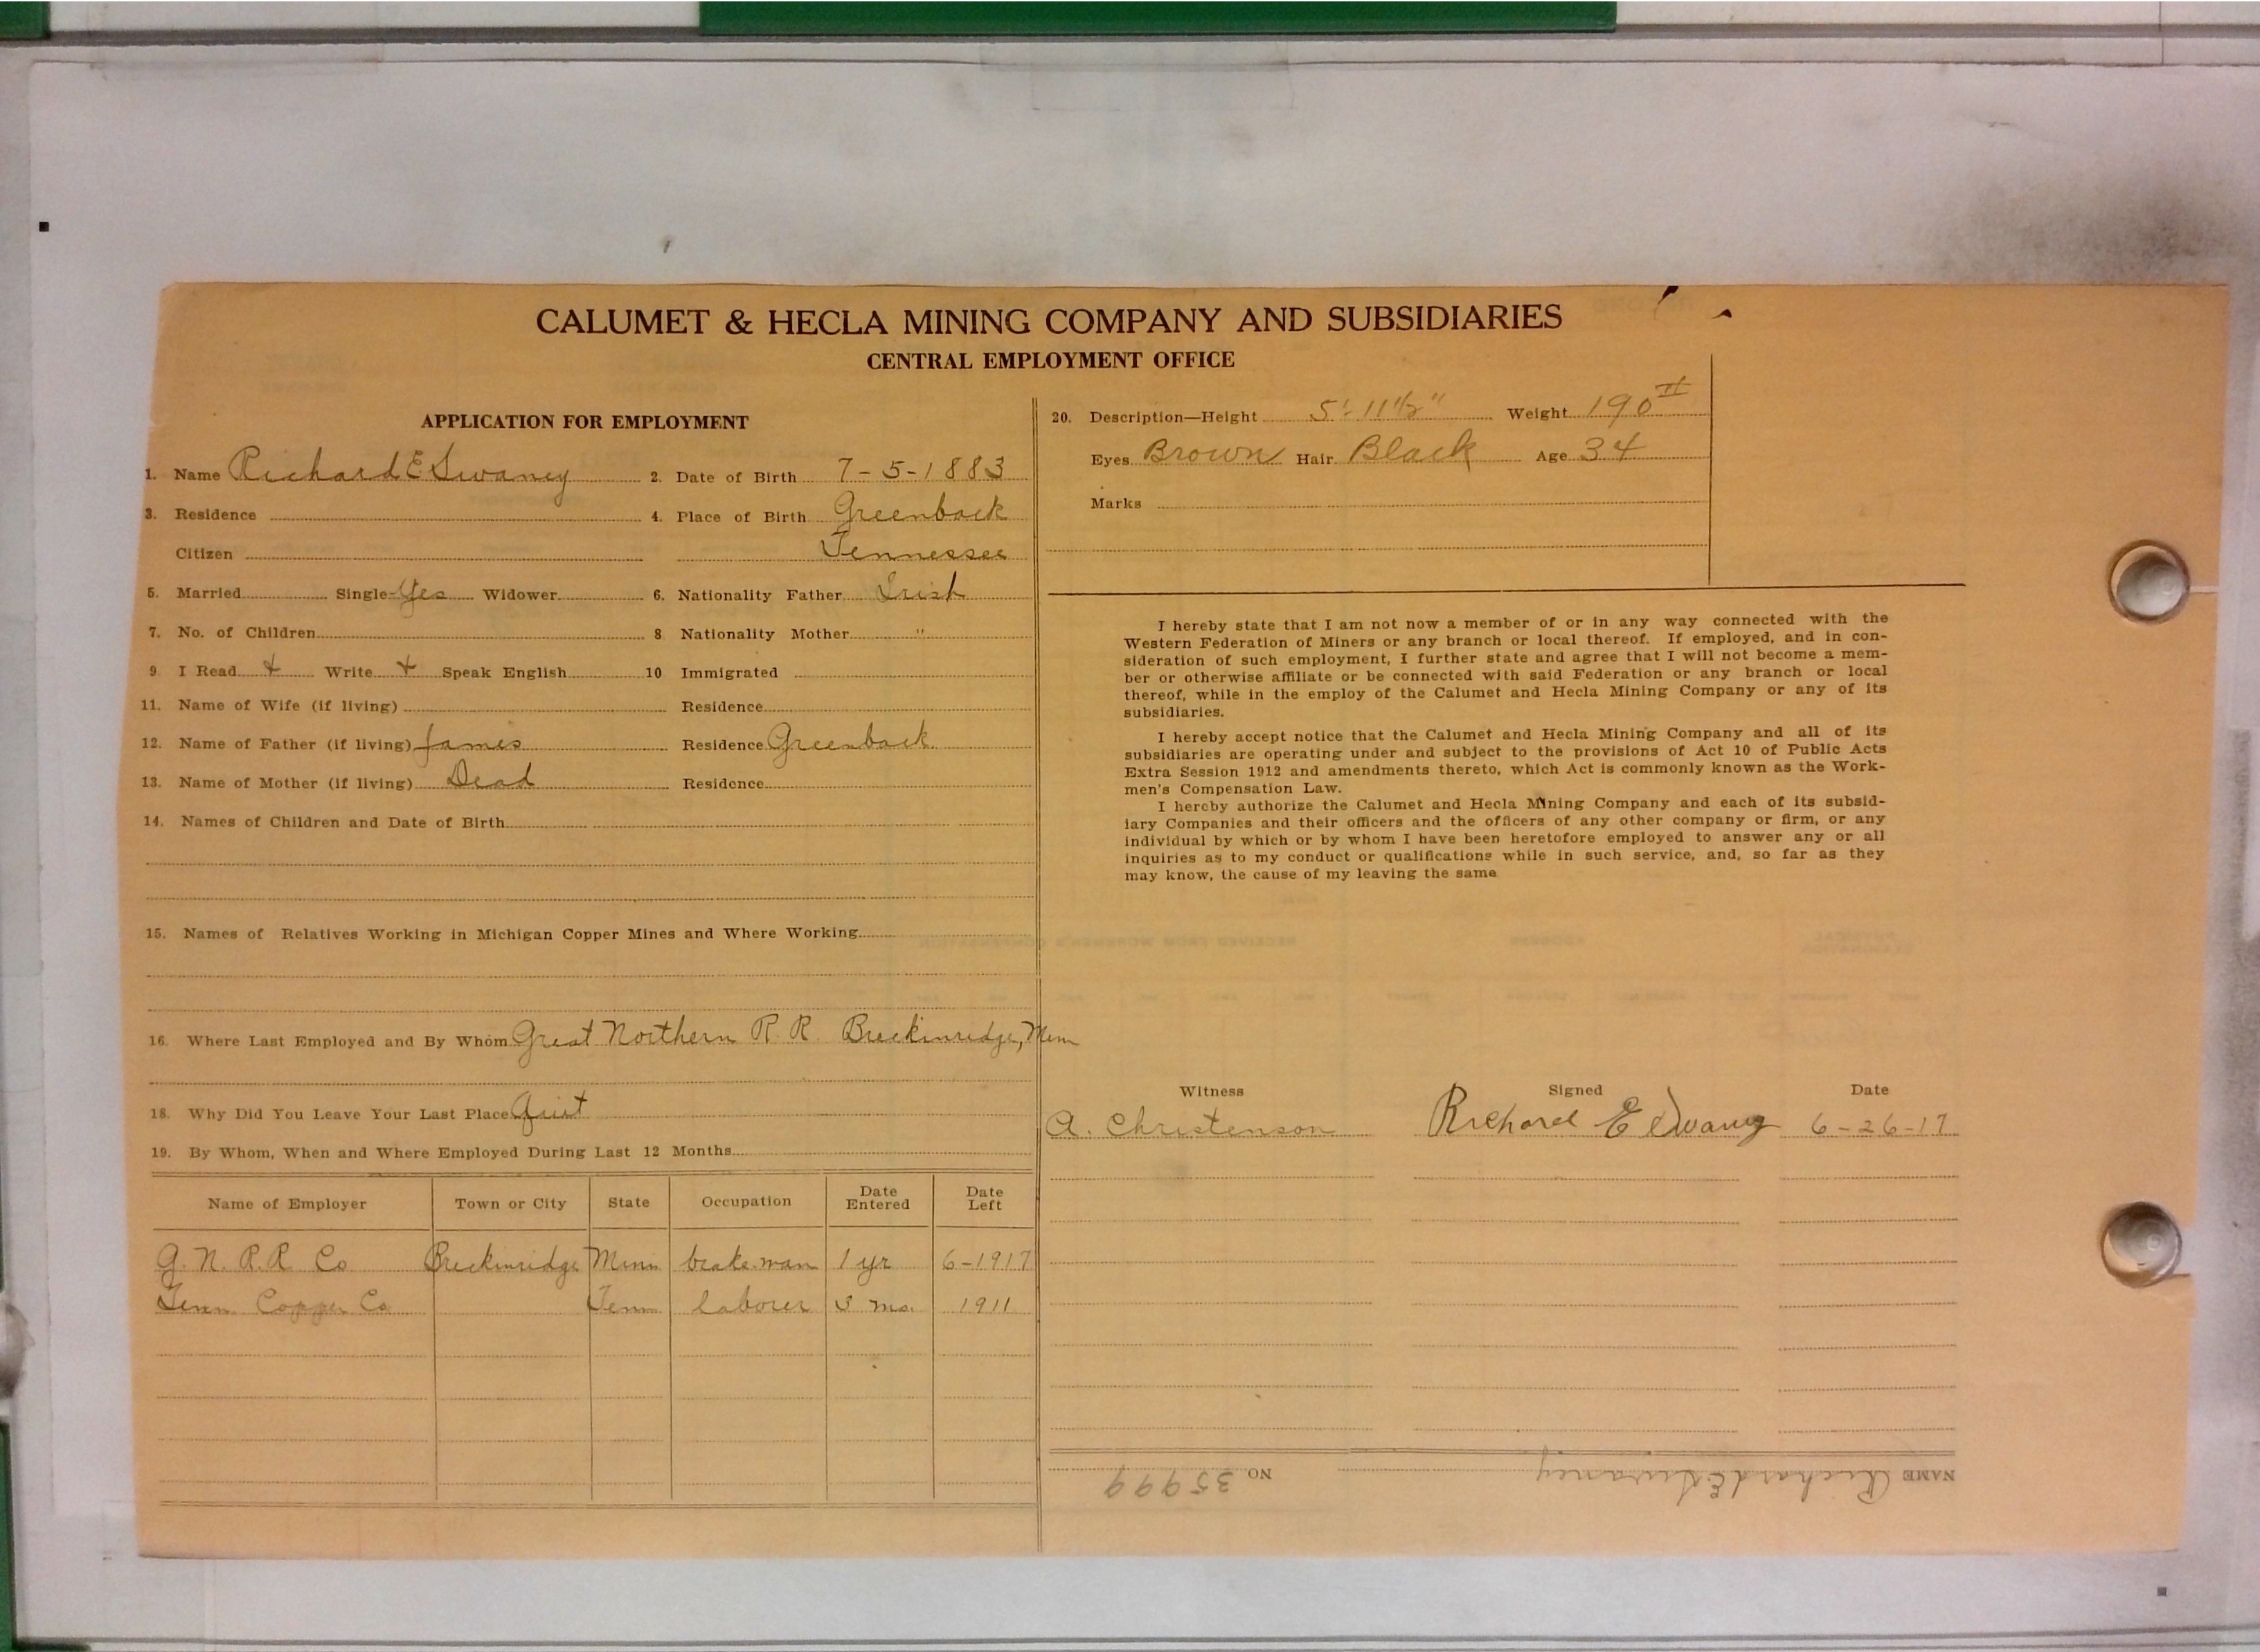 CALUMET & HECLA MINING COMPANY AND SUBSIDIARIES
CENTRAL EMPLOYMENT OFFICE
APPLICATION FOR EMPLOYMENT
1. Name Richard E Swaney 2. Date of Birth 7-5-1883
3. Residence 4. Place of Birth Greenback
Citizen Tennessee
5. Married Single Yes Widower 6. Nationality Father Irish
7. No. of Children 8 Nationality Mother "
9 I Read + Write + Speak English 10 Immigrated
11. Name of Wife (if living) Residence
12. Name of Father (if living) James Residence Greenback
13. Name of Mother (if living) Dead Residence
14. Names of Children and Date of Birth
15. Names of Relatives Working in Michigan Copper Mines and Where Working
16. Where Last Employed and By Whom Great Northern R. R. Breckinridge, Minn
18. Why Did You Leave Your Last Place Quit
19. By Whom, When and Where Employed During Last 12 Months
Name of Employer Town or City State Occupation Date Entered Date Left
G. N. R.R. Co Breckinridge Minn brakeman 1 yr 6-1917
Tenn Copper Co Tenn laborer 3 mo. 1911
20. Description—Height 5'-11½" Weight 190
Eyes Brown Hair Black Age 34
Marks
I hereby state that I am not now a member of or in any way connected with the
Western Federation of Miners or any branch or local thereof. If employed, and in con-
sideration of such employment, I further state and agree that I will not become a mem-
ber or otherwise affiliate or be connected with said Federation or any branch or local
thereof, while in the employ of the Calumet and Hecla Mining Company or any of its
subsidiaries.
I hereby accept notice that the Calumet and Hecla Mining Company and all of its
subsidiaries are operating under and subject to the provisions of Act 10 of Public Acts
Extra Session 1912 and amendments thereto, which Act is commonly known as the Work-
men's Compensation Law.
I hereby authorize the Calumet and Hecla Mining Company and each of its subsid-
iary Companies and their officers and the officers of any other company or firm, or any
individual by which or by whom I have been heretofore employed to answer any or all
inquiries as to my conduct or qualifications while in such service, and, so far as they
may know, the cause of my leaving the same
Witness Signed Date
A. Christenson Richard E Swaney 6-26-17
NAME Richard E Swaney NO 35999